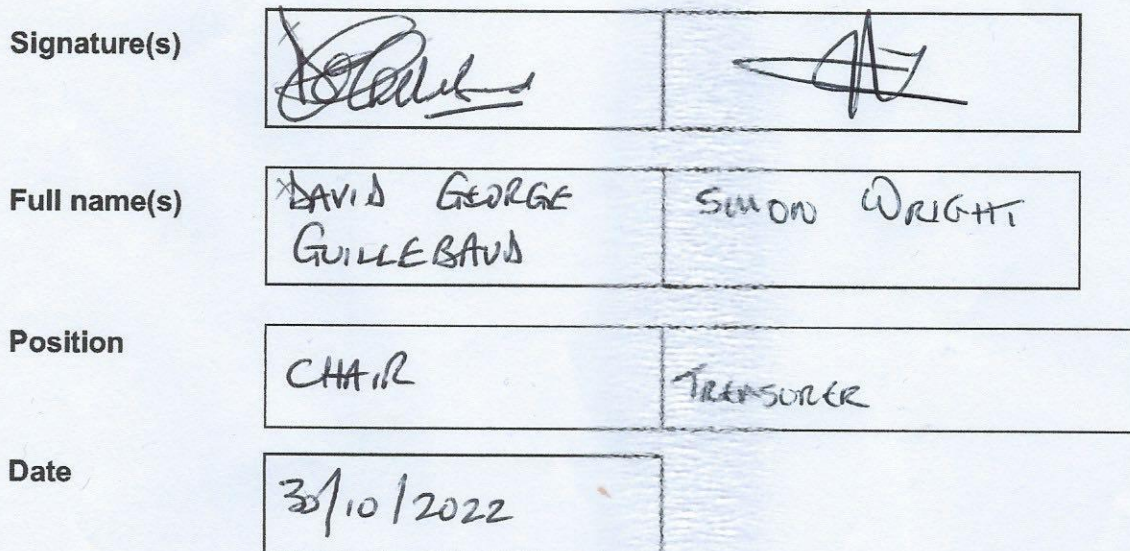 Signature(s)
Full name(s)
DAVID GEORGE
GUILLEBAUD
SIMON WRIGHT
Position
CHAIR
TREASURER
Date
30/10/2022